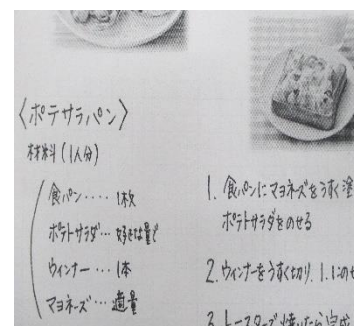 〈ポテサラパン〉
材料(1人分)
食パン‥‥1枚
ポテトサラダ‥好きな量で
ウィンナー‥1本
マヨネーズ‥適量
1. 食パンにマヨネーズをうすく塗
ポテトサラダをのせる
2. ウィンナーをうすく切り、1.にのせ
3. トースターで焼いたら完成